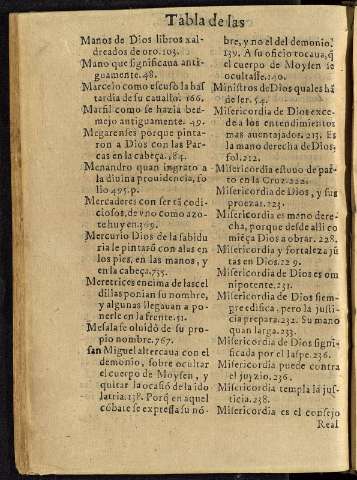 Tabla de las
Manos de Dios libros xal-
dreados de oro. 103.
Mano que significaua anti-
guamente. 48.
Marcelo como escusò la bas
tardia de su cauallo. 166.
Marfil como se hazia ber-
mejo antiguamente. 49.
Megarenses porque pinta-
ron a Dios con las Par-
cas en la cabeça. 484.
Menandro quan ingrato a
la diuina prouidencia, fo
lio 495. p.
Mercaderes con ser tã codi-
ciosos, de vno como azo-
te huyen. 369.
Mercurio Dios de la sabidu
ria le pintarõ con alas en
los pies, en las manos, y
en la cabeça. 735.
Meretrices encima de las cel
dillas ponian su nombre,
y algunas llegauan a po-
nerle en la frente. 51.
Mesala se oluidò de su pro-
pio nombre. 767.
san Miguel altercaua con el
demonio, sobre ocultar
el cuerpo de Moysen, y
quitar la ocasiõ de la ido
latria. 138. Porq̃ en aquel
cõbate se expressa su nõ-
bre, y no el del demonio.
139. A su oficio tocaua, q̃
el cuerpo de Moysen se
ocultasse. 140.
Ministros de Dios quales hã
de ser. 54.
Misericordia de Dios exce-
de a los entendimientos
mas auentajados. 213. Es
la mano derecha de Dios,
fol. 212.
Misericordia estuuo de par-
to en la Cruz. 222.
Misericordia de Dios, y sus
proezas. 223.
Misericordia es mano dere-
cha, porque desde alli co
miẽça Dios a obrar. 228.
Misericordia y fortaleza jũ
tas en Dios. 229.
Misericordia de Dios es om
nipotente. 231.
Misericordia de Dios siem-
pre edifica, pero la justi-
cia prepara. 232. Su mano
quan larga. 233.
Misericordia de Dios signi-
ficada por el Iaspe. 236.
Misericordia puede contra
el juyzio. 236.
Misericordia templa la jus-
ticia. 238.
Misericordia es el consejo
Real